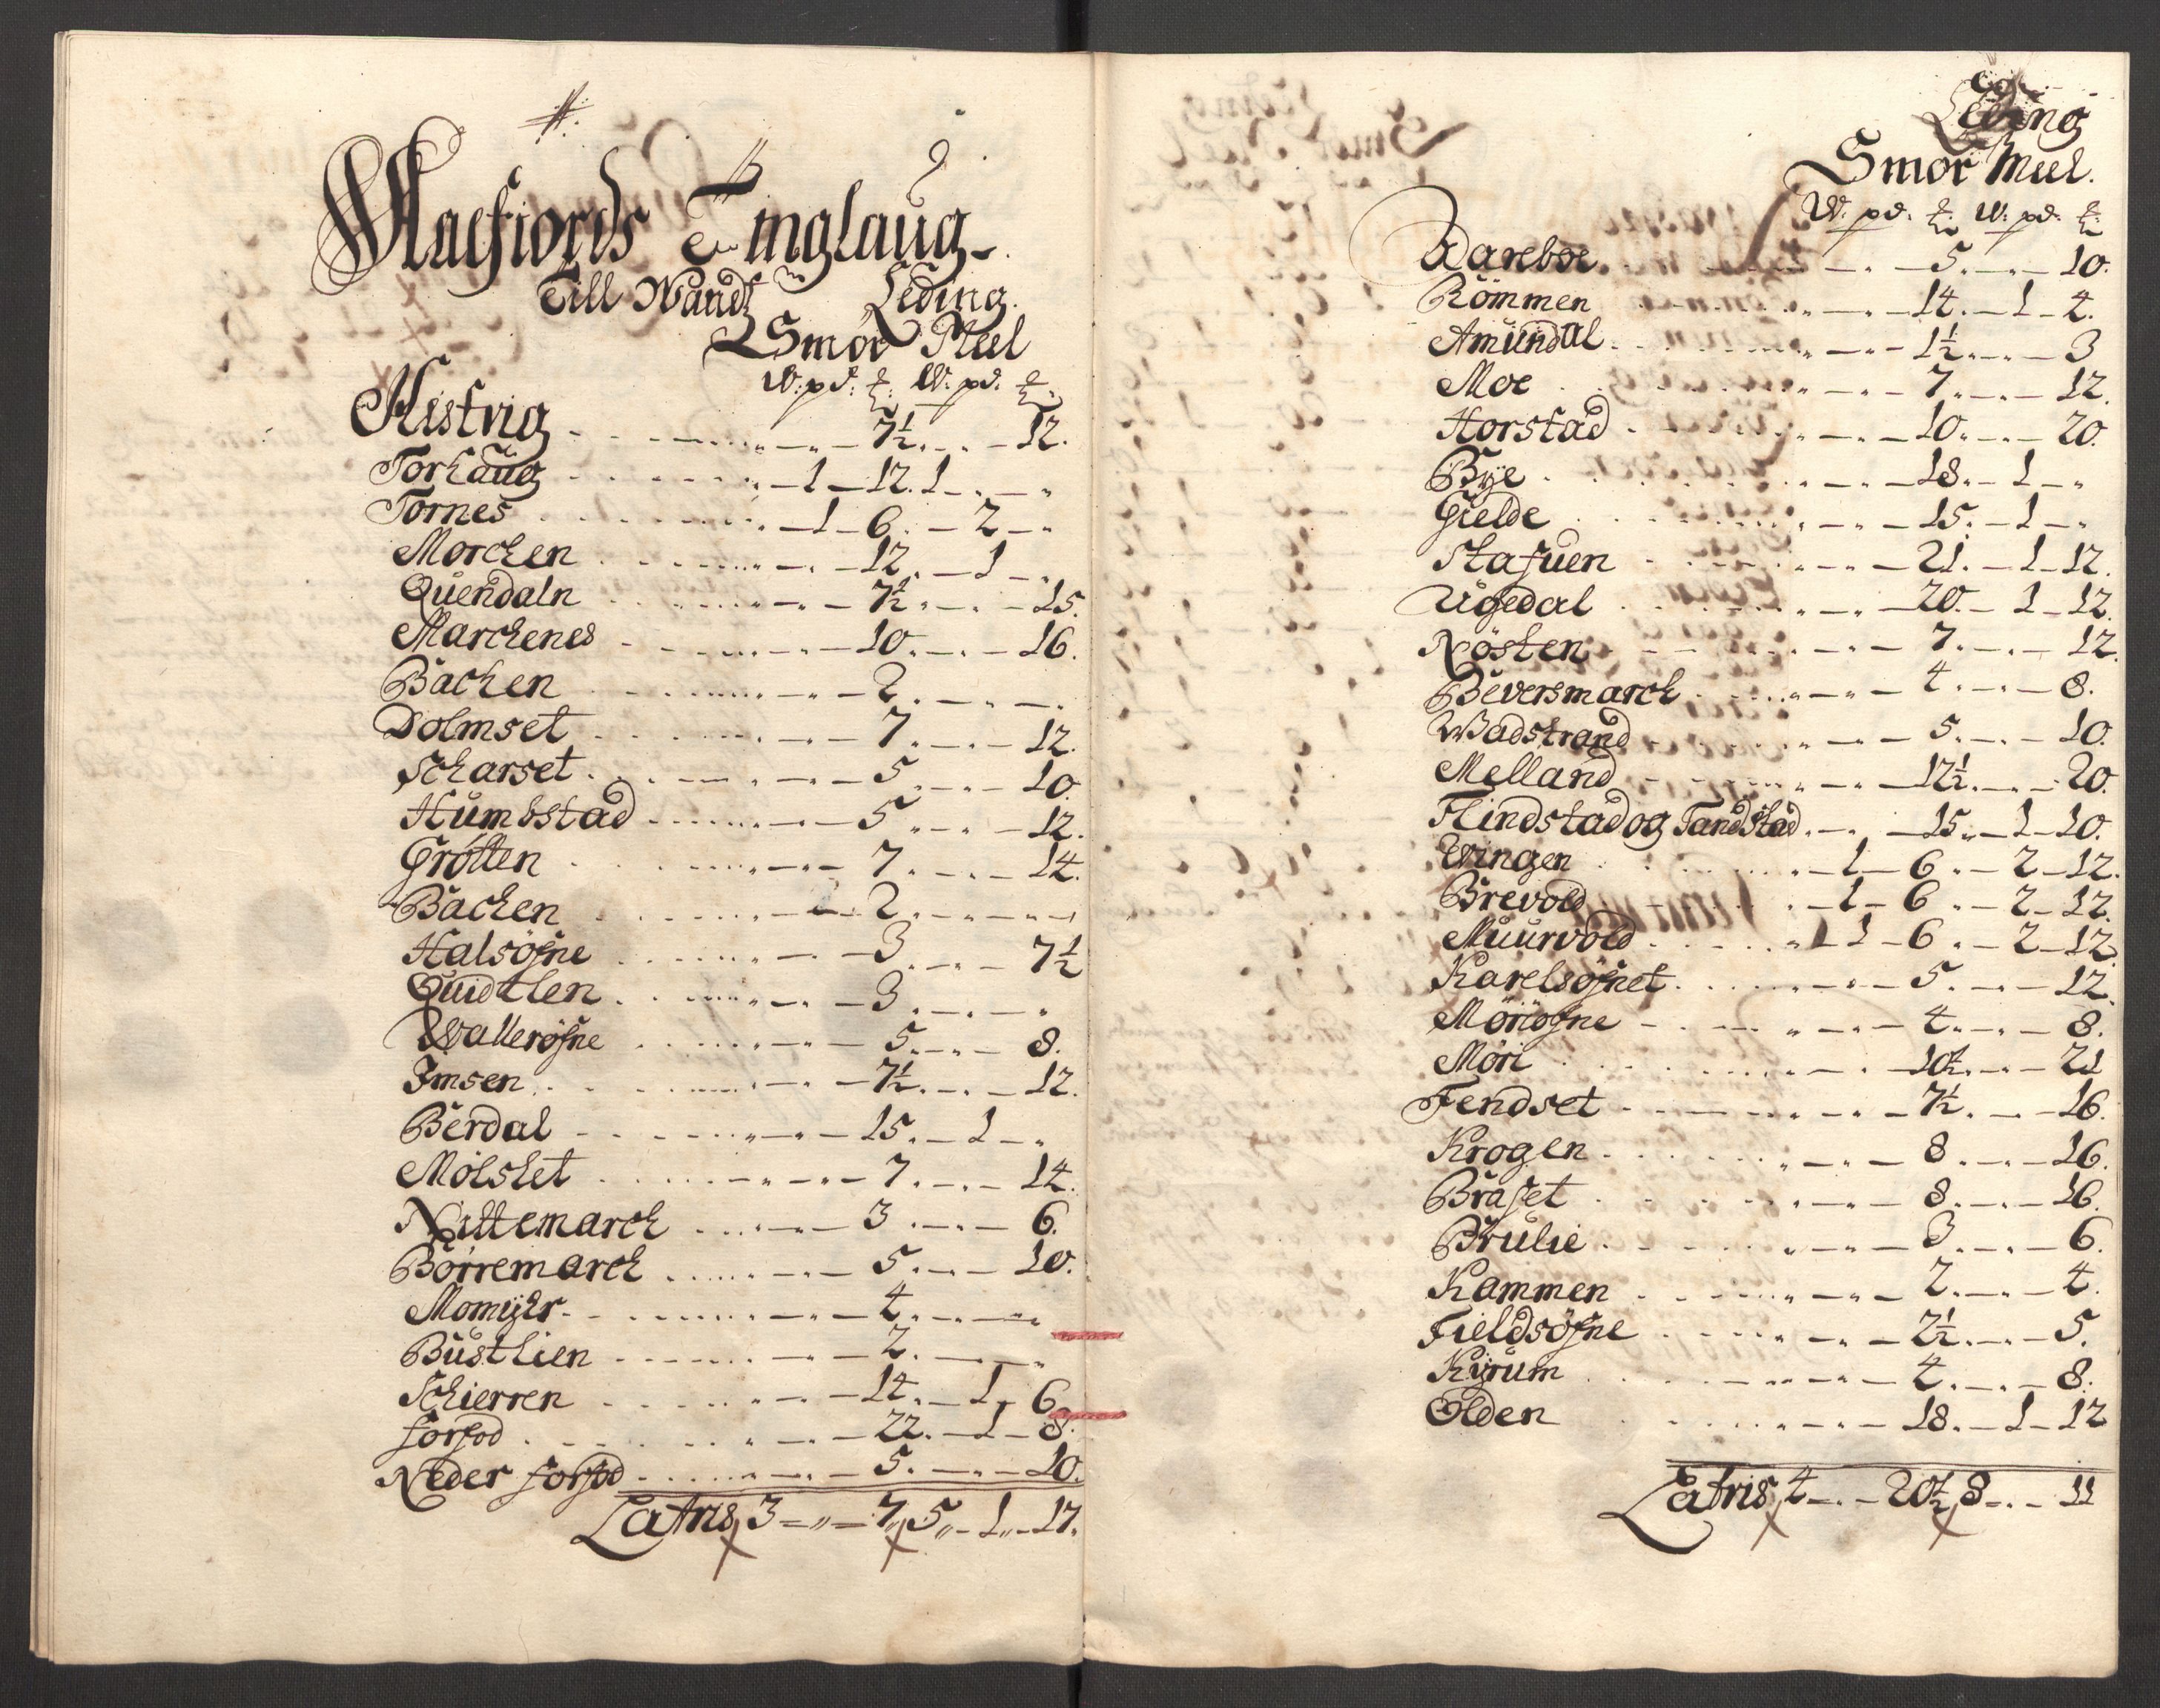 #.
Aaefiords Tinglaug.
Till Wandt Leding.
Smør Meel
W: pd: ℔: W: pd: ℔:
Kistvig - 7½ - 12.
Torhaug - 1 - 12. 1 - -
Tornes - 1 - 6. - 2 - -
Morchen - 12. - 1 - -
Quendaln - 7½ - - 15.
Marchenes - 10. - - 16.
Bachen - 2. - - -
Dolmset - 7. - - 12.
Scharset - 5. - - 10.
Humbstad - 5. - - 12.
Grøtten - 7. - - 14.
Bachen - 2. - - -
Halsøyne - 3. - - 7½
Quidtlen - 3. - - -
Wallerøyne - 5. - - 8.
Imsen - 7½. - - 12.
Berdal - 15. - 1 - -
Mølslet - 7. - - 14.
Nittemarch - 3. - - 6.
Børremarch - 5. - - 10.
Momyhr - 4. - - -
Bustlien - 2. - - -
Schierren - 14. - 1 - 6
forfod - 22. - 1 - 8.
Neder forfod - 5. - - 10.
Latris 3 - „ - 7„ 5„ - 1„ - 17.
Leding
Smør Meel.
W: pd: ℔: W: pd: ℔:
Dareboe - 5. - - 10.
Rømmen - 14. - 1 - 4.
Amundal - 1½. - - 3
Moe - 7. - - 12.
Horstad - 10. - - 20.
Bye - 18. - 1 - „
Gielde - 15. - 1 - „
Stafuen - 21. - 1 - 12.
Ugedal - 20. - 1 - 12.
Nøsten - 7. - - 12.
Beversmarch - 4. - - 8.
Wadstrand - 5. - - 10.
Melland - 12½. - - 20.
Flindstad og Tandstad - 15. - 1 - 10.
Wingen - 1 - 6. - 2 - 12.
Brevold - 1 - 6. - 2 - 12.
Muurvold - 1 - 6. - 2 - 12.
Karelsøynet - 5. - - 12.
Møriøyne - 4. - - 8.
Møri - 10½. - - 21
Fendset - 7½. - - 16.
Krogen - 8. - - 16.
Brafet - 8. - - 16.
Brulie - 3. - - 6.
Kammen - 2. - - 4.
Fieldsøyne - 2½. - - 5.
Kyrum - 4. - - 8.
Olden - 18. - 1 - 12
Latris 4 - . - 20½ 8 - . - 11